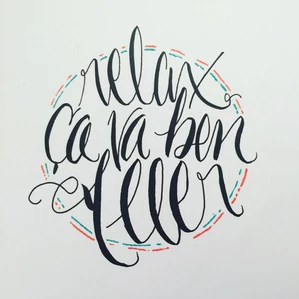 relax
ça va ben
aller